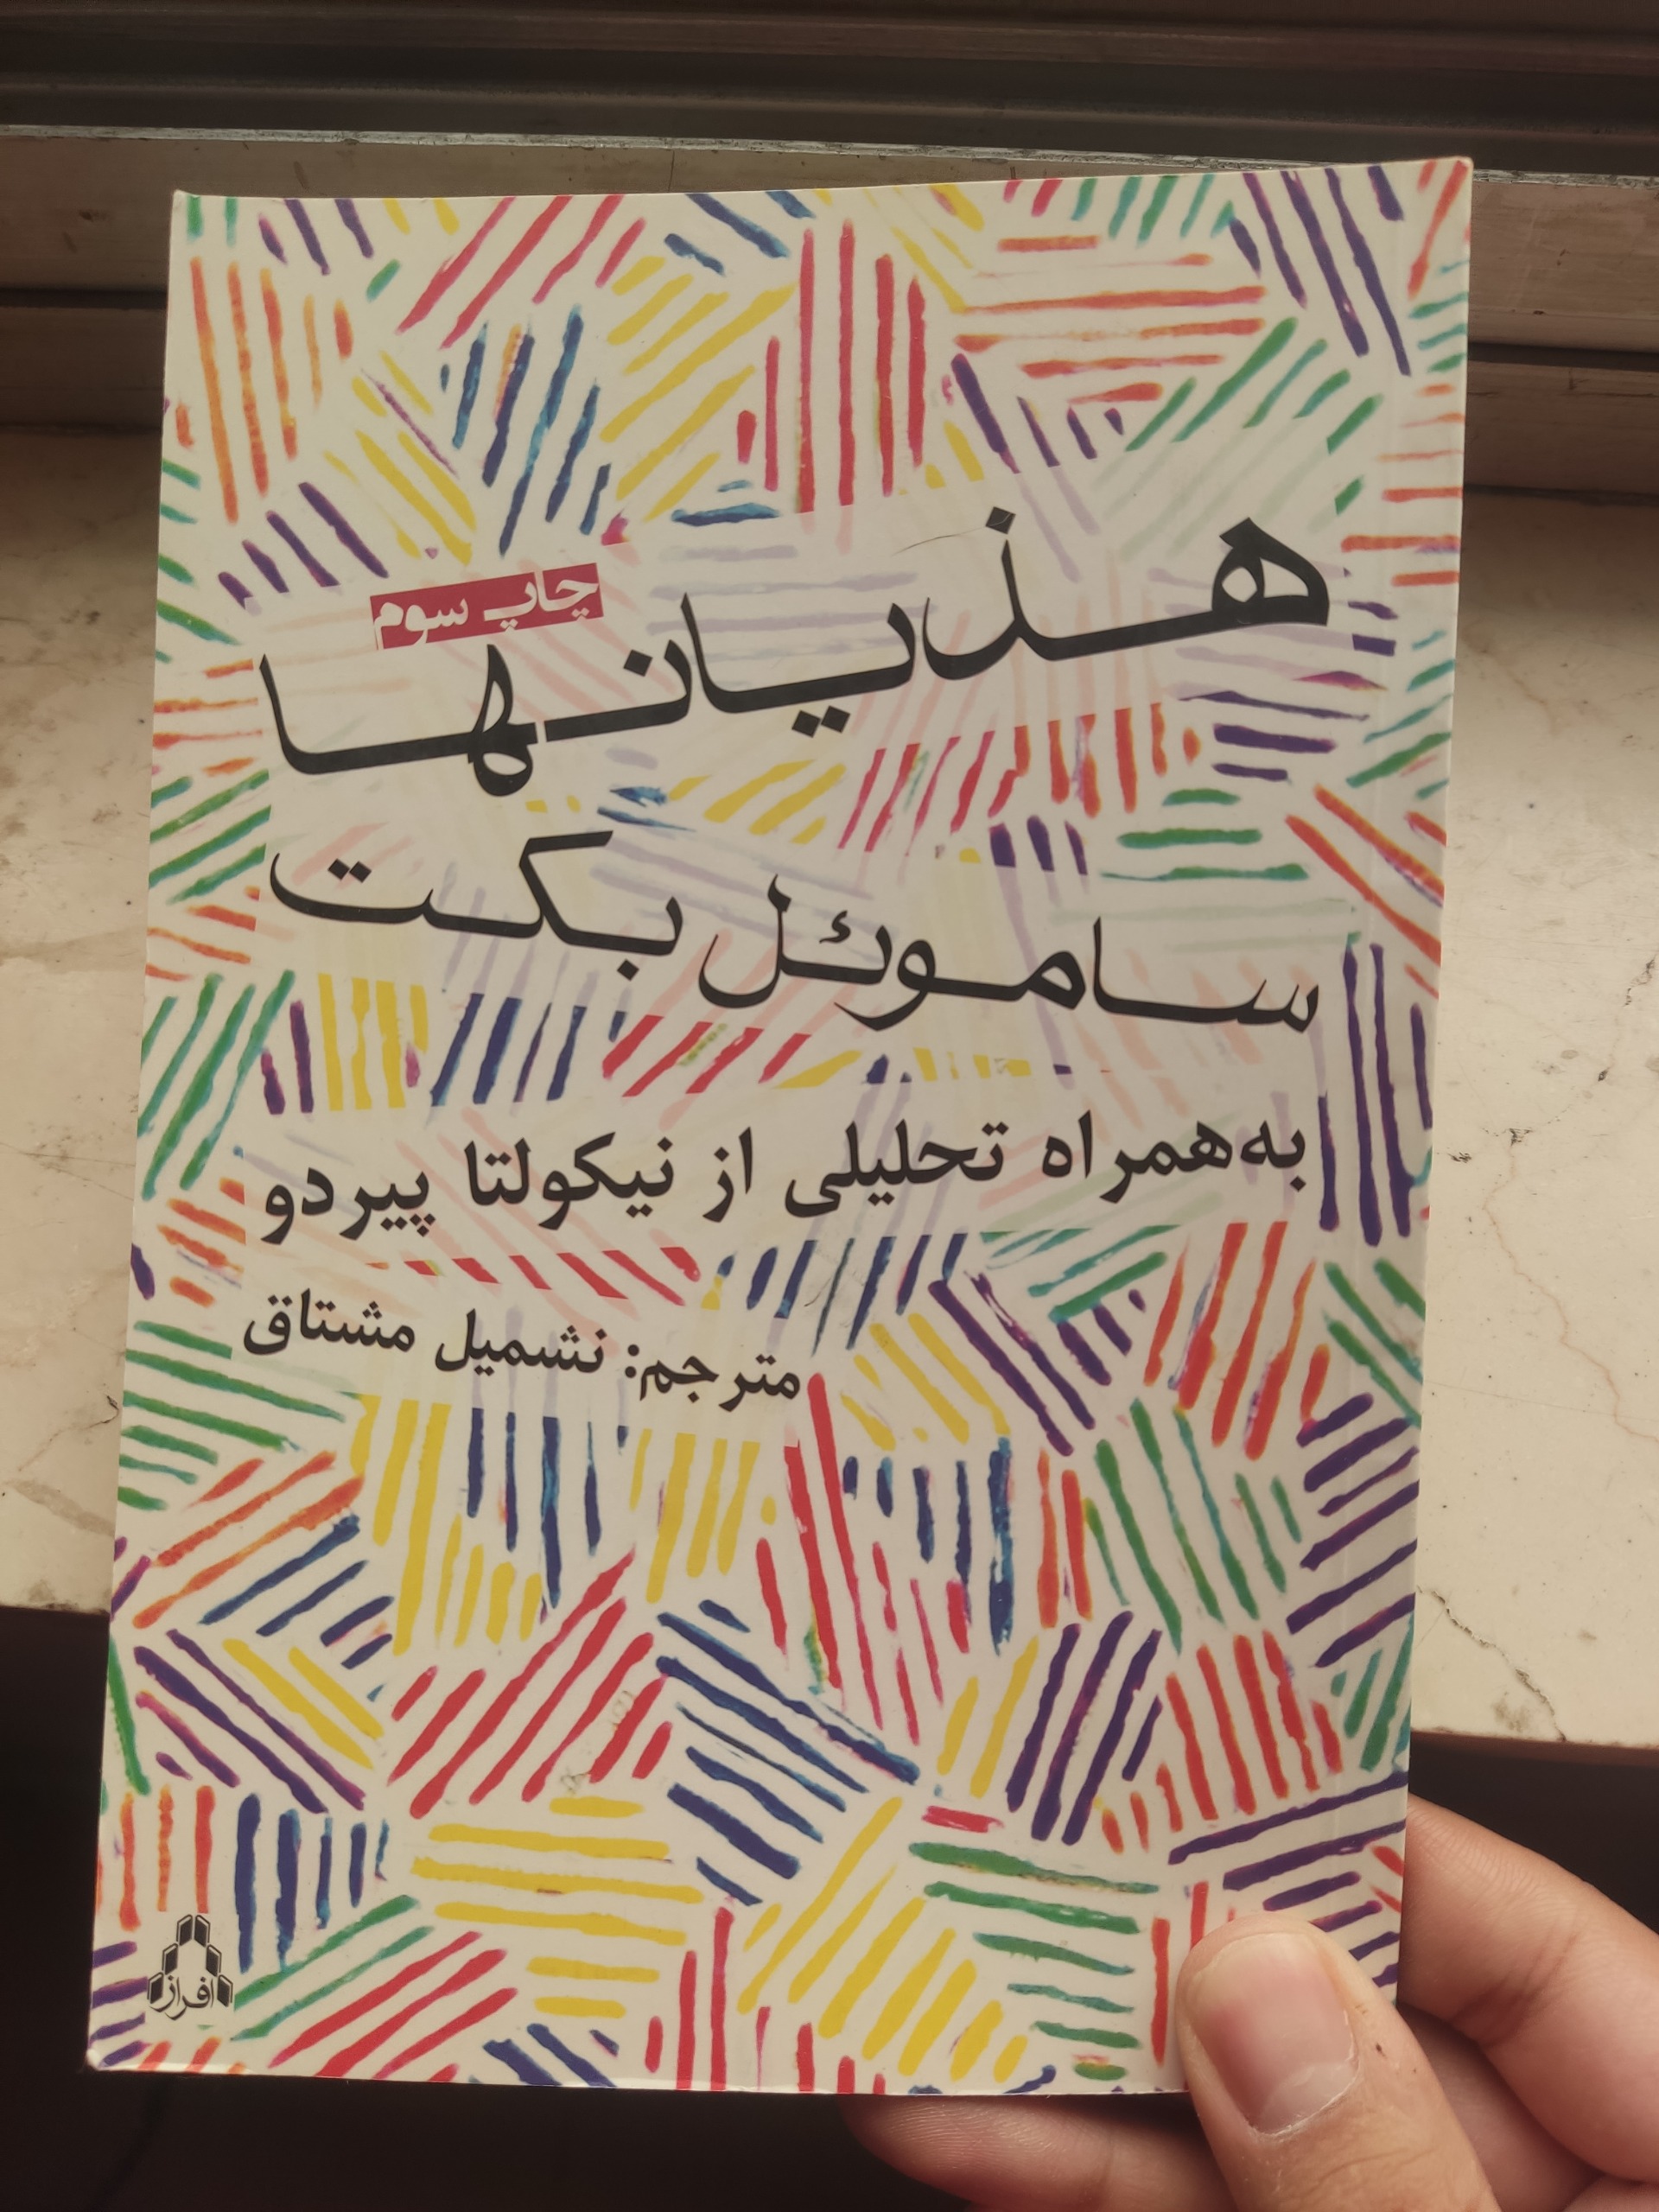 چاپ سوم
هذیانها
ساموئل بکت
به‌همراه تحلیلی از نیکولتا پیردو
مترجم: نشمیل مشتاق
افراز